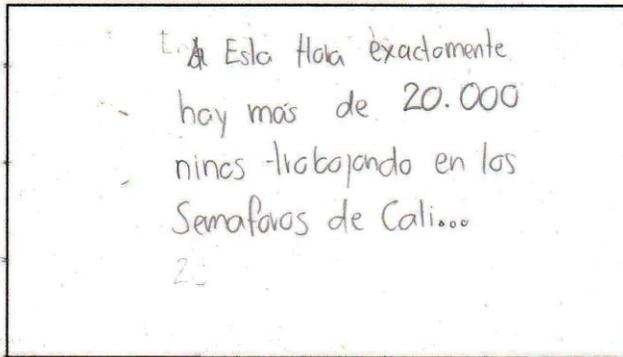 A Esta Hora exactamente
hay más de 20.000
ninos trabajando en los
Semaforos de Cali...